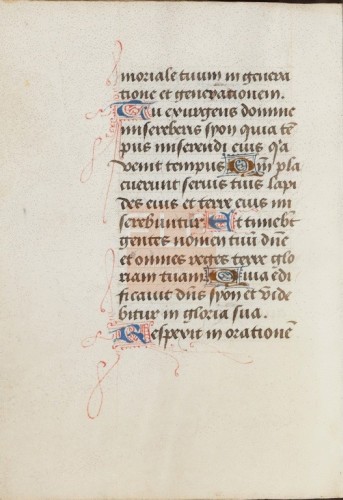 moriale tuum in genera
tione et generationem.
Tu exurgens domine
misereberis syon quia tẽ
pus miserendi eius q̃a
venit tempus Qm̃ pla
cuerunt servis tuis lapi
des eius et terre eius mi
serebuntur Et timebũt
gentes nomen tuũ dñe
et omnes reges terre glo
riam tuam Quia edi
ficavit dñs syon et vide
bitur in gloria sua.
Respexit in orationẽ